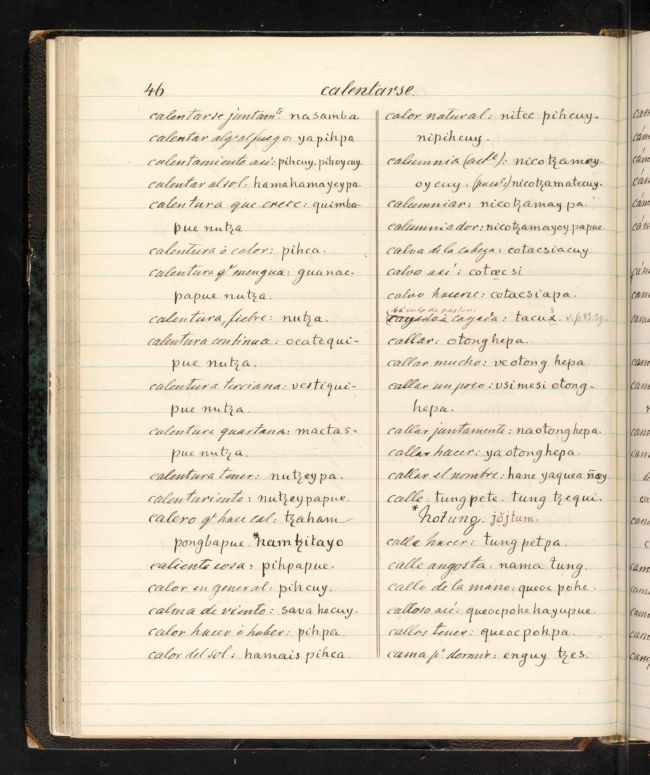 46
calentarse.
calentarse juntamte nasamba
calentar algo al fuego: yapihpa
calentamiento asi: pihcuy. pihoycuy.
calentar al sol: hamahamayeypa.
calentura que crece: quimba-
pue nutza.
calentura ò calor: pihca.
calentura qe mengua: guanac-
papue nutza.
calentura, fiebre: nutza.
calentura continua: ocatequi-
pue nutza.
calentura terciana: vestiqui-
pue nutza.
calentura quartana: mactas-
pue nutza.
calentura tener: nutzeypa.
calenturiento: nutzeypapue.
calero qe hace cal: tzaham
pongbapue. *ham tzitayo
caliente cosa: pihpapue.
calor en general: pihcuy.
calma de viento: sava hecuy.
calor hacer ò haber: pihpa
calor del sol: hamais pihca.
calor natural: nitec pihcuy.
nipihcuy.
calumnia (acte): nicotzamoy-
oycuy. (pase) nicotzamatecuy.
calumniar: nicotzamaypa.
calumniador: nicotzamayoypapue.
calva de la cabeza: cotacsiacuy.
calvo asi: cotæcsi
calvo hacerse: cotacsiapa.
cayada: tacux. v. p. 93.
callar: otonghepa.
callar mucho: veotong hepa.
callar un poco: usimesi otong-
hepa.
callar juntamente: naotonghepa.
callar hacer: yaotonghepa.
callar el nombre: hane yaquea ñæy
calle: tungpete. tung tzequi.
*notung. jŏjtum.
calle hacer: tungpetpa.
calle angosta: nama tung.
callo de la mano: queoc pohe.
calloso asi: queocpohehayupue.
callos tener: queocpohpa.
cama pa dormir: enguy tzes.